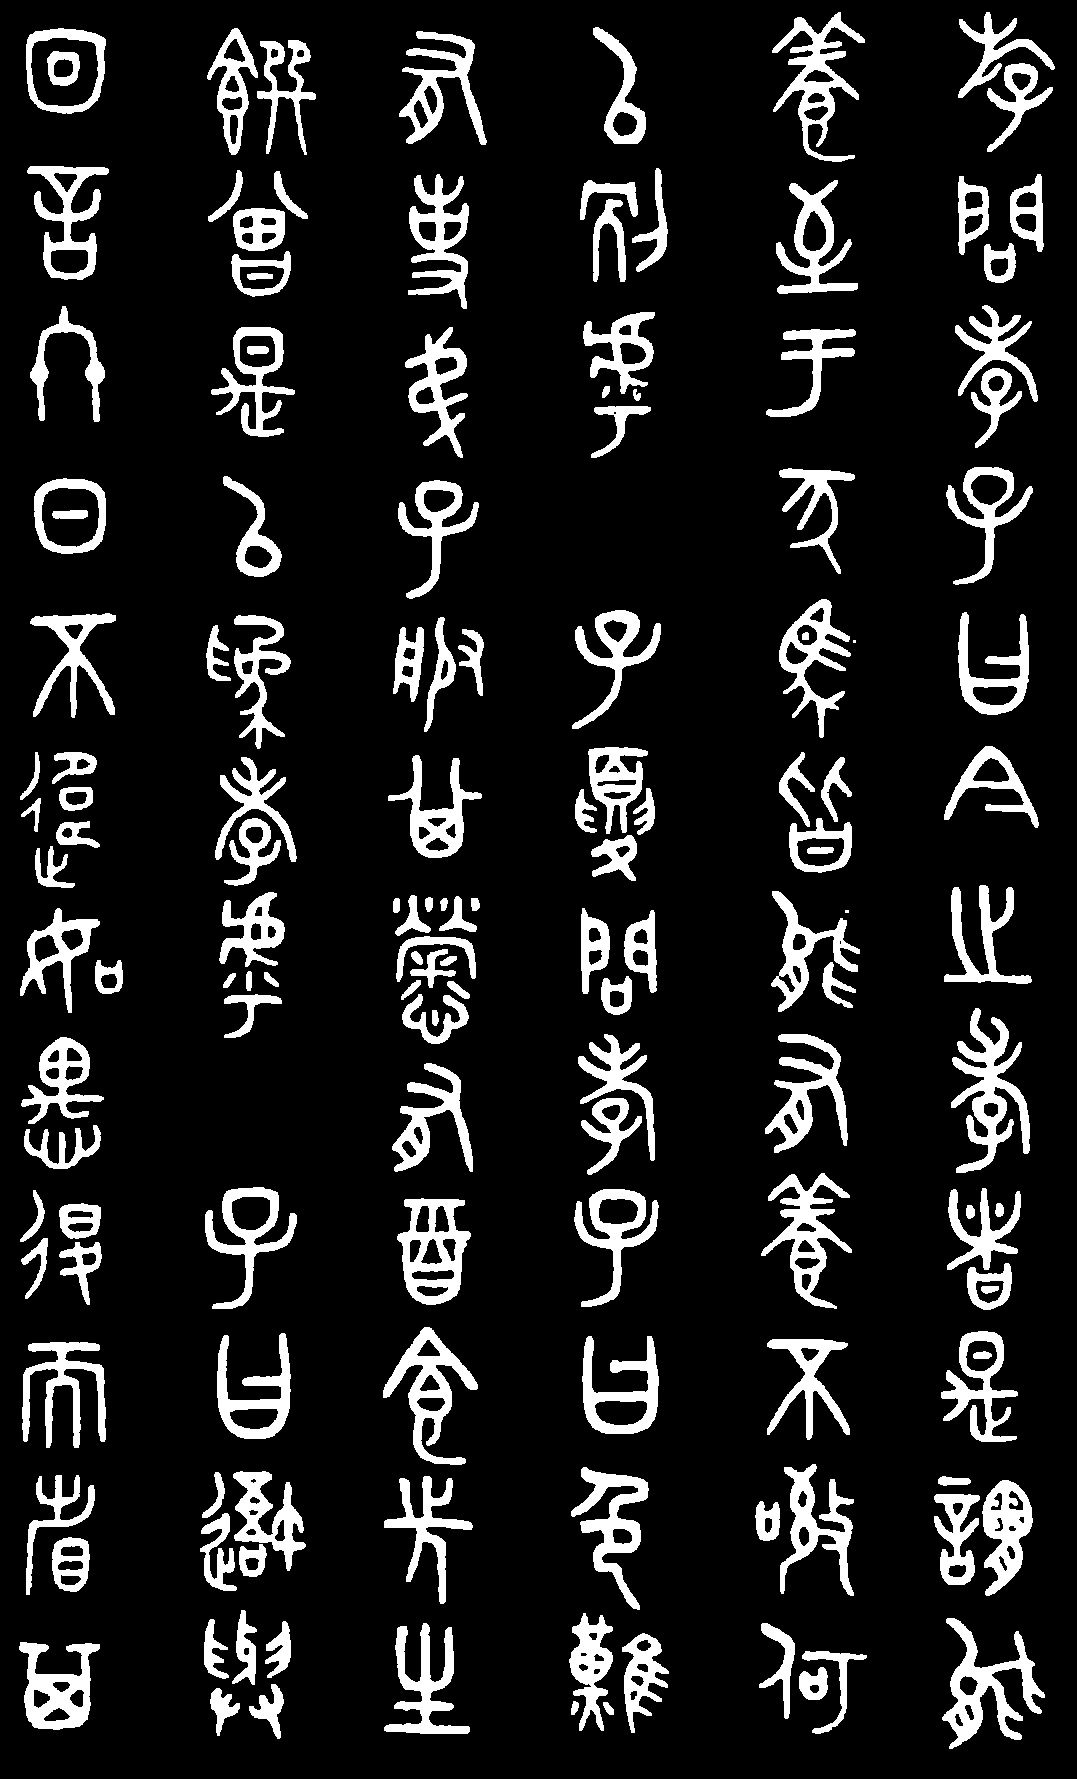 游問孝子曰今之孝者是謂能
養至于犬馬皆能有養不敬何
以別乎 子夏問孝子曰色難
有事弟子服其勞有酒食先生
饌曾是以為孝乎 子曰吾與
回言終日不違如愚退而省其